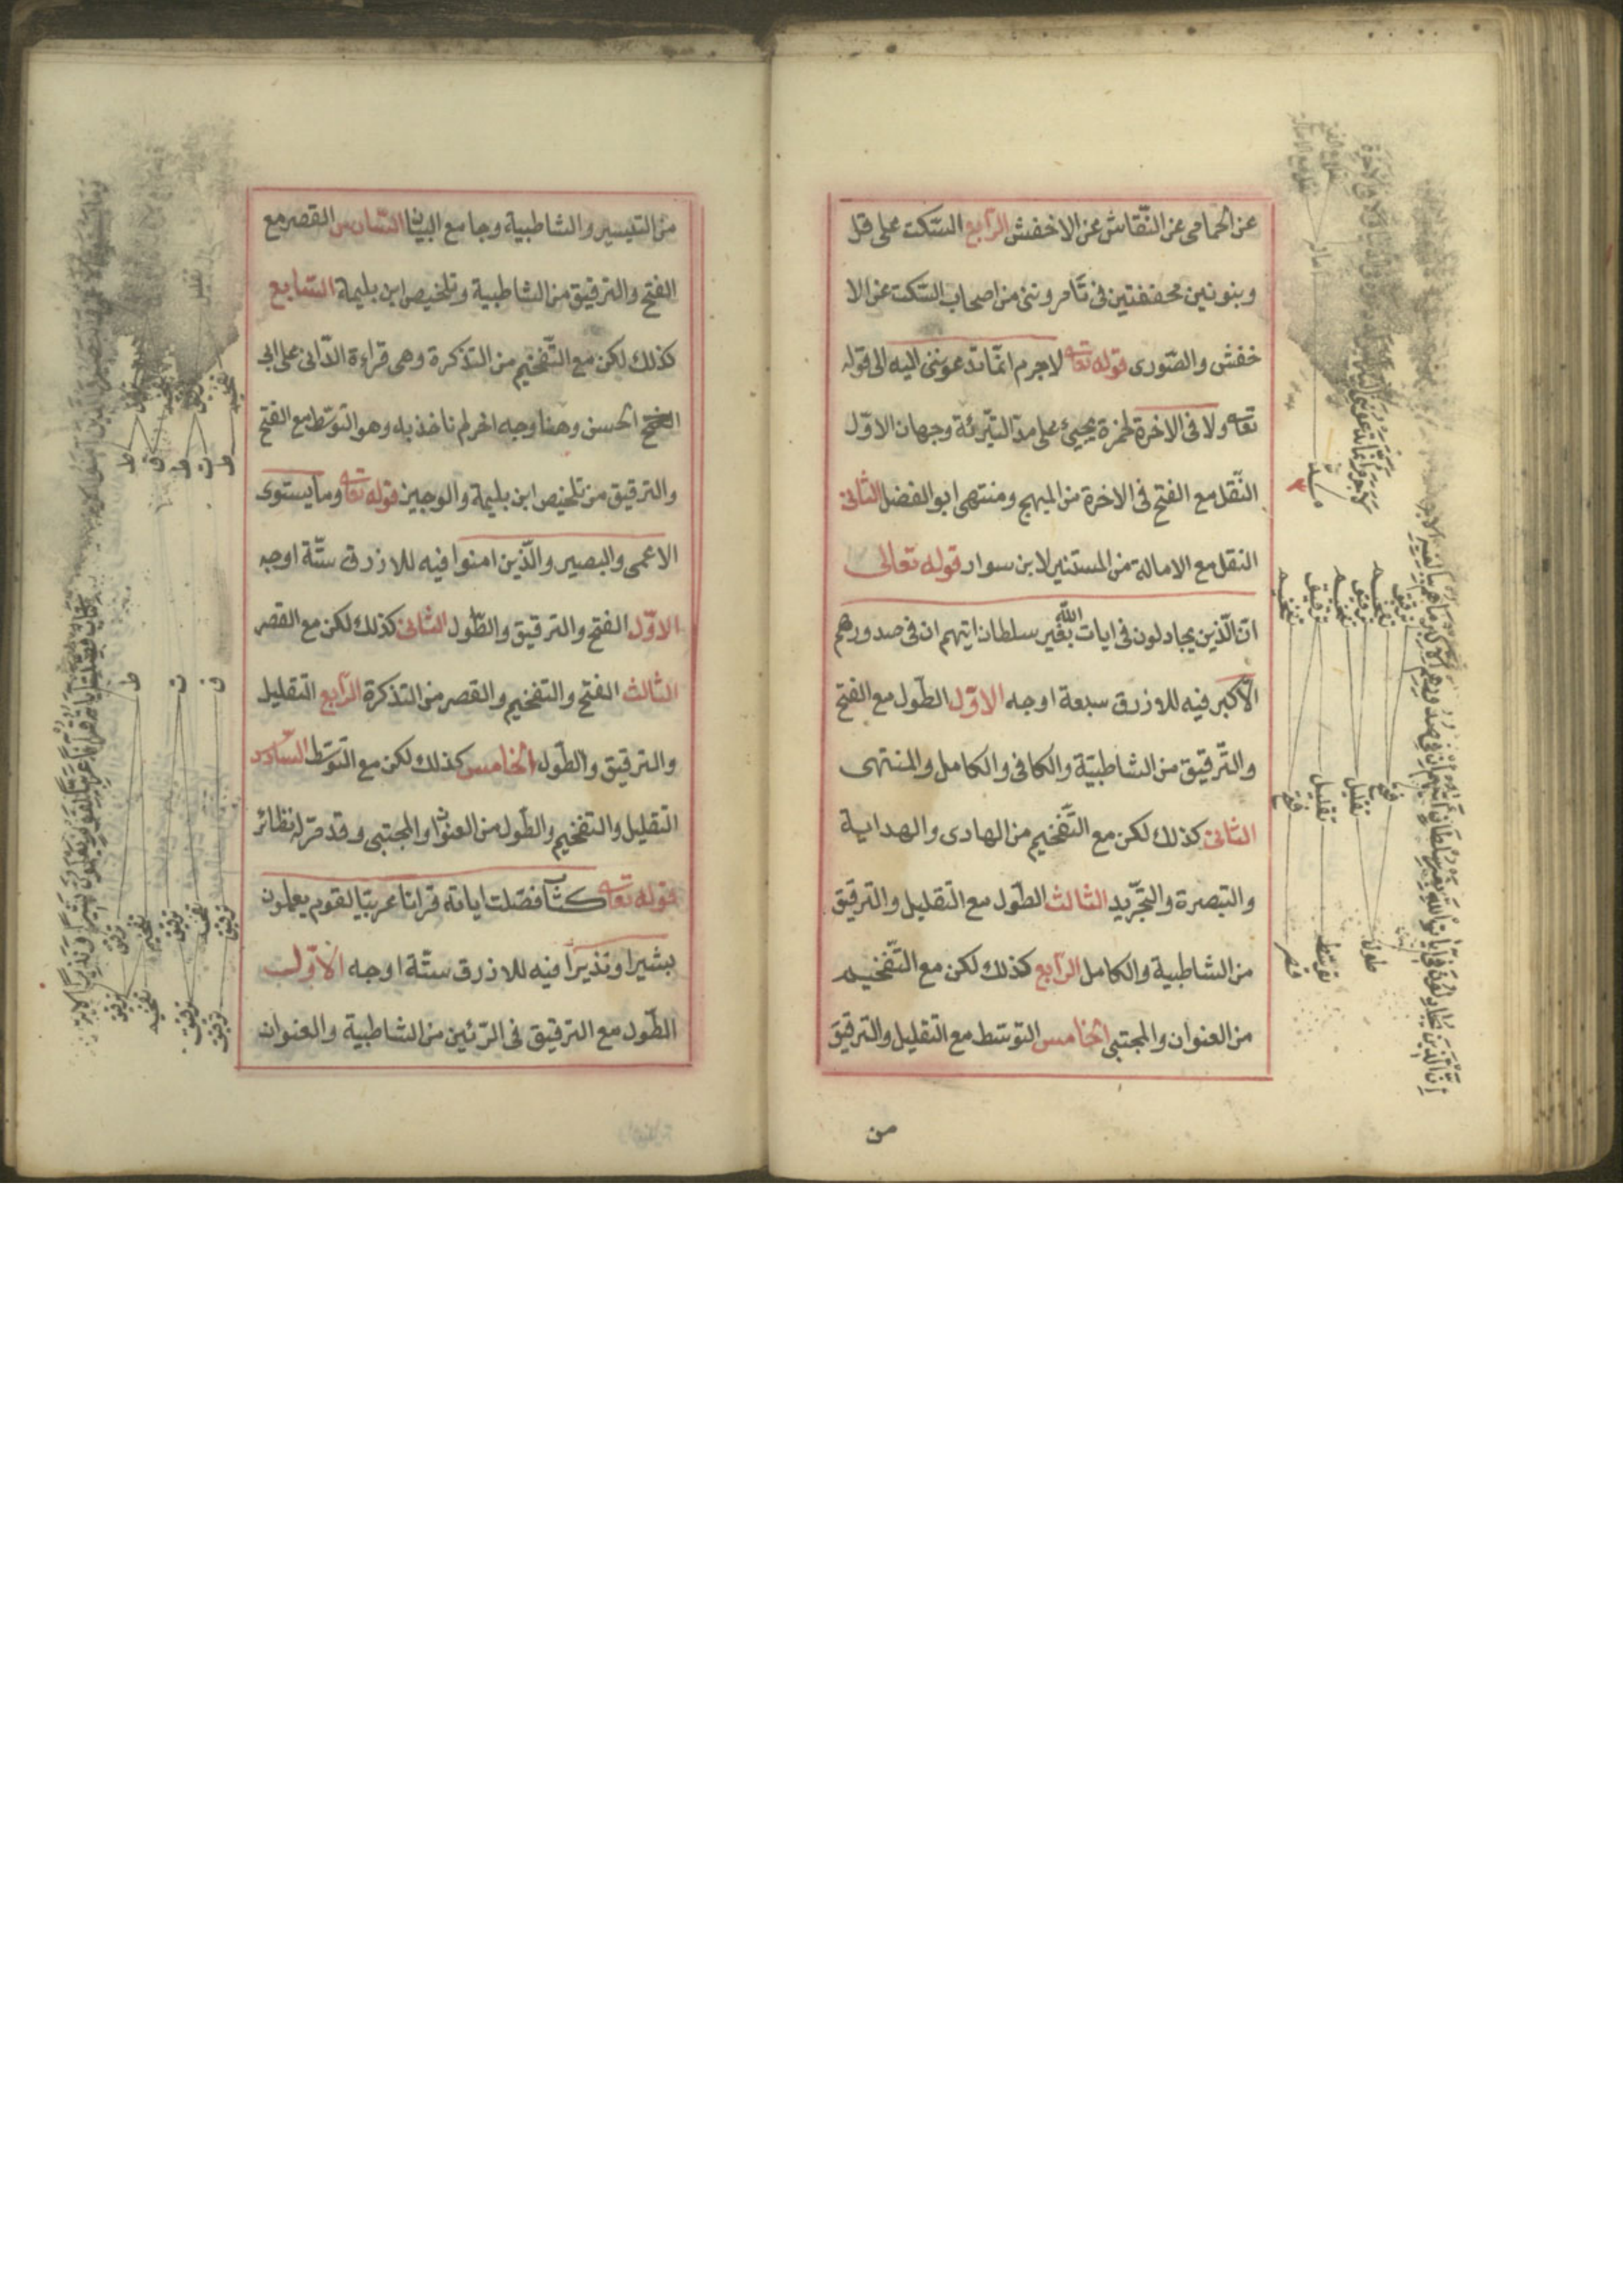 عن الحمامى عن النقاش عن الاخفش الرابع السكت على قل
وبنونين مخففتين فى تامروننى من اصحاب السكت عن الا
خفش والصورى قوله تعا لاجرم انما تدعوننى اليه الى قوله
تعا ولا فى الاخرة لحمزة يجيئ على مد التبرئة وجهان الاول
النقل مع الفتح فى الاخرة من المبهج ومنتهى ابو الفضل الثانى
النقل مع الامالة من المستنير لابن سوار قوله تعالى
ان الذين يجادلون فى ايات الله بغير سلطان ايتهم ان فى صدورهم
الاكبر فيه للازرق سبعة اوجه الاول الطول مع الفتح
والترقيق من الشاطبية والكافى والكامل والمنتهى
الثانى كذلك لكن مع التفخيم من الهادى والهداية
والتبصرة والتجريد الثالث الطول مع التقليل والترقيق
من الشاطبية والكامل الرابع كذلك لكن مع التفخيم
من العنوان والمجتبى الخامس التوسط مع التقليل والترقيق
من
ترقيق
تفخيم
ترقيق
تفخيم
ترقيق
تفخيم
فتح
تقليل
تقليل
فتح
طول
توسط
قصر
من التيسير والشاطبية وجامع البيان السادس القصر مع
الفتح والترقيق من الشاطبية وتلخيص ابن بليمة السابع
كذلك لكن مع التفخيم من التذكرة وهى قراءة الدانى على ابى
الحسن وهنا وجه اخر لم ناخذ به وهو التوسط مع الفتح
والترقيق من تلخيص ابن بليمة والوجيز قوله تعا وما يستوى
الاعمى والبصير والذين امنوا فيه للازرق ستة اوجه
الاول الفتح والترقيق والطول الثانى كذلك لكن مع القصر
الثالث الفتح والتفخيم والقصر من التذكرة الرابع التقليل
والترقيق والطول الخامس كذلك لكن مع التوسط السادس
التقليل والتفخيم والطول من العنوان والمجتبى وقد مر له نظائر
قوله تعا كتاب فصلت اياته قرانا عربيا لقوم يعلمون
بشيرا ونذيرا فيه للازرق ستة اوجه الاول
الطول مع الترقيق فى الرئين من الشاطبية والعنوان
ف
ت
ط